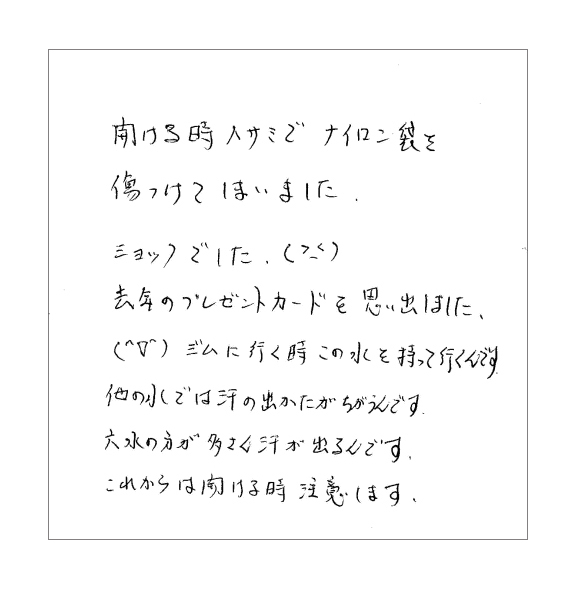 開ける時ハサミでナイロン袋を
傷つけてしまいました.
ショックでした.(>_<)
去年のプレゼントカードを思い出しました、
(^∇^) ジムに行く時この水を持って行くんです
他の水では汗の出かたがちがうんです.
六水の方が多さん汗が出るんです.
これからは開ける時注意します.